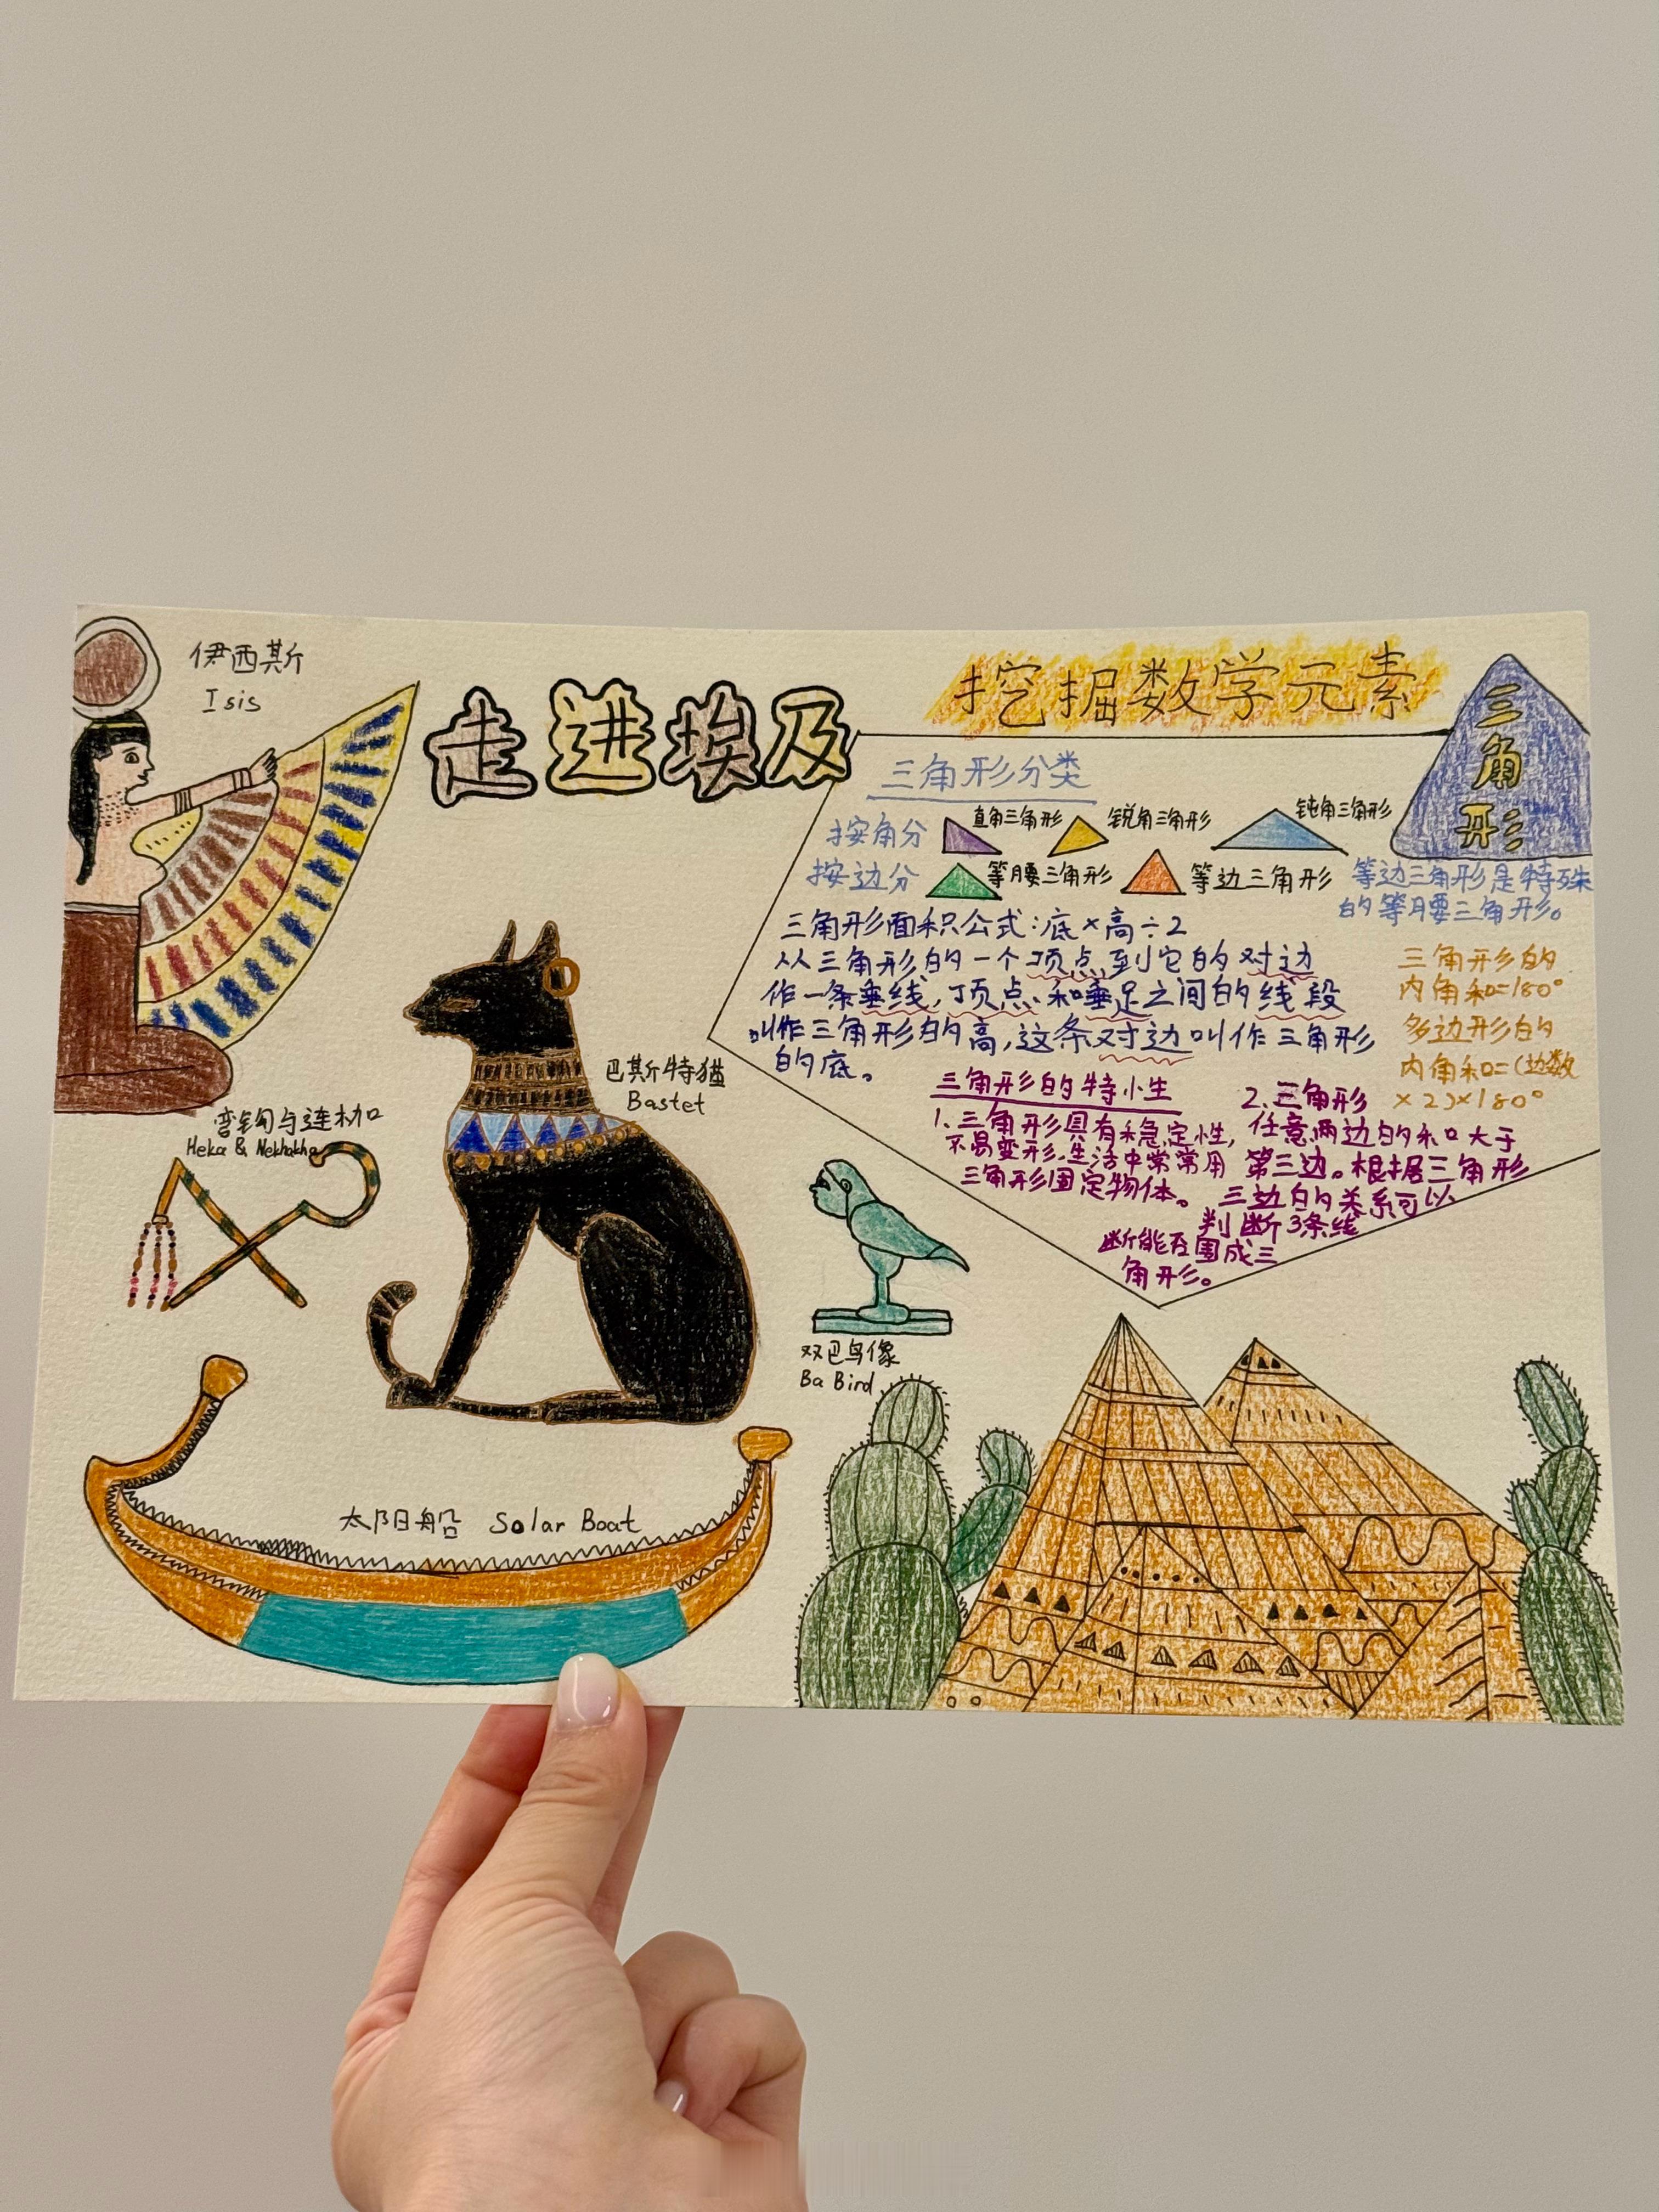 伊西斯
Isis
走进埃及
挖掘数学元素
三角形
三角形分类
按角分
直角三角形
锐角三角形
钝角三角形
按边分
等腰三角形
等边三角形
等边三角形是特殊
的等腰三角形。
三角形面积公式:底×高÷2
从三角形的一个顶点到它的对边
作一条垂线,顶点和垂足之间的线段
叫作三角形的高,这条对边叫作三角形
的底。
三角形的
内角和=180°
多边形的
内角和=(边数
×2)×180°
三角形的特小生
1.三角形具有稳定性,
不易变形.生活中常常用
三角形固定物体。
2.三角形
任意两边的和大于
第三边。根据三角形
三边的关系可以
判断3条线
断能否围成三
角形。
巴斯特猫
Bastet
弯钩与连枷
Heka & Nekhakha
双巴鸟像
Ba Bird
太阳船 Solar Boat